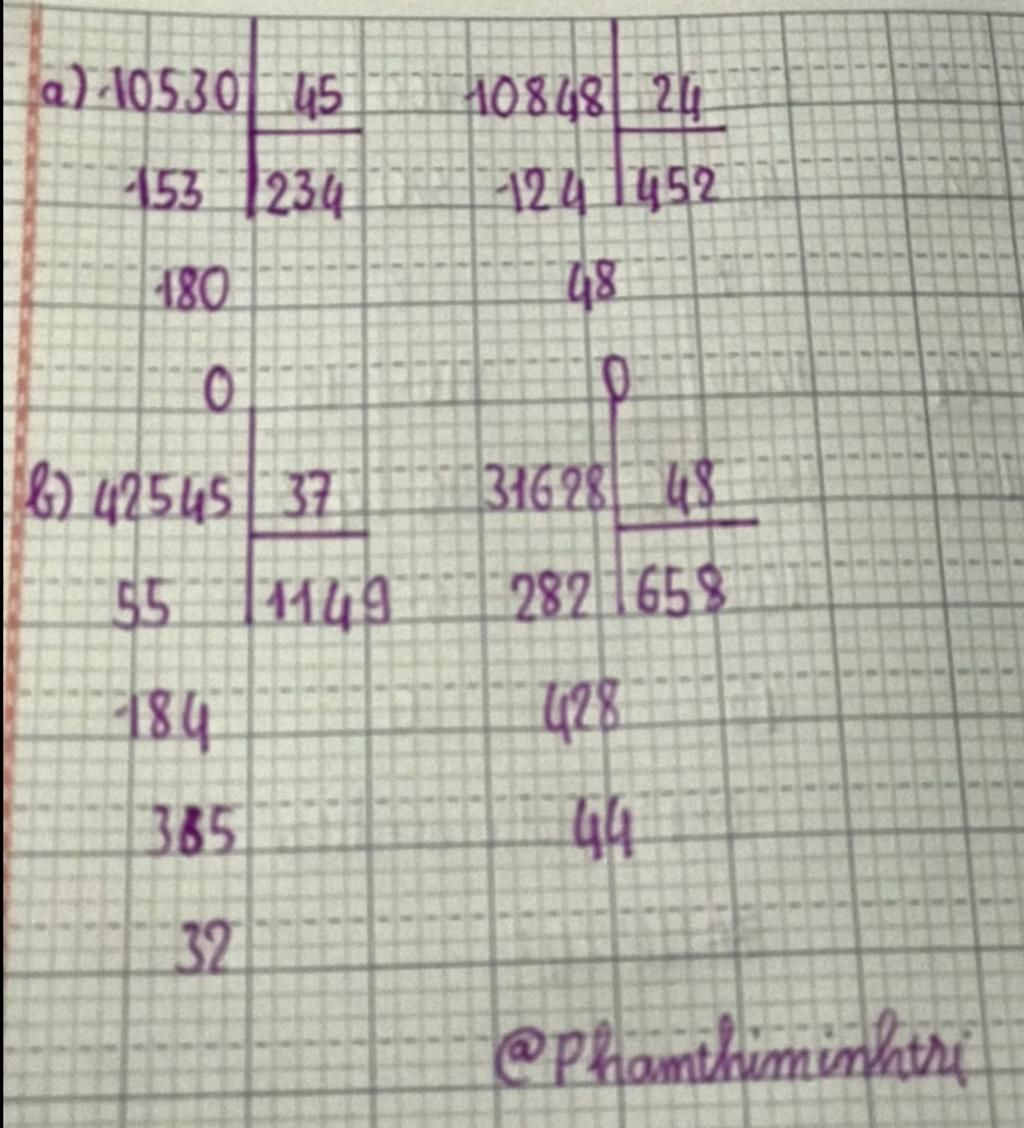 a) 10530 45 10848 24
153 234 124 452
180 48
0 0
b) 42545 37 31628 48
55 1149 282 658
184 428
365 44
32
@Phamthiminhtri